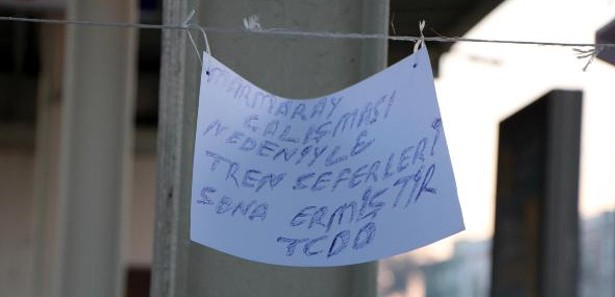 MARMARAY
ÇALIŞMASI
NEDENİYLE
TREN SEFERLERİ
SONA ERMİŞTİR
TCDD